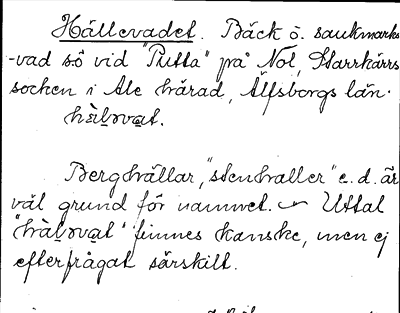 Hällevadet. Bäck ö. sankmarks
-vad s.ö vid "Putta" på Nol, Starrkärrs
socken i Ale härad, Älfsborgs län.
Berghällar, "stenhaller" e. d. är
väl grund för namnet. — Uttal
finnes kanske, men ej
efterfrågat särskilt.